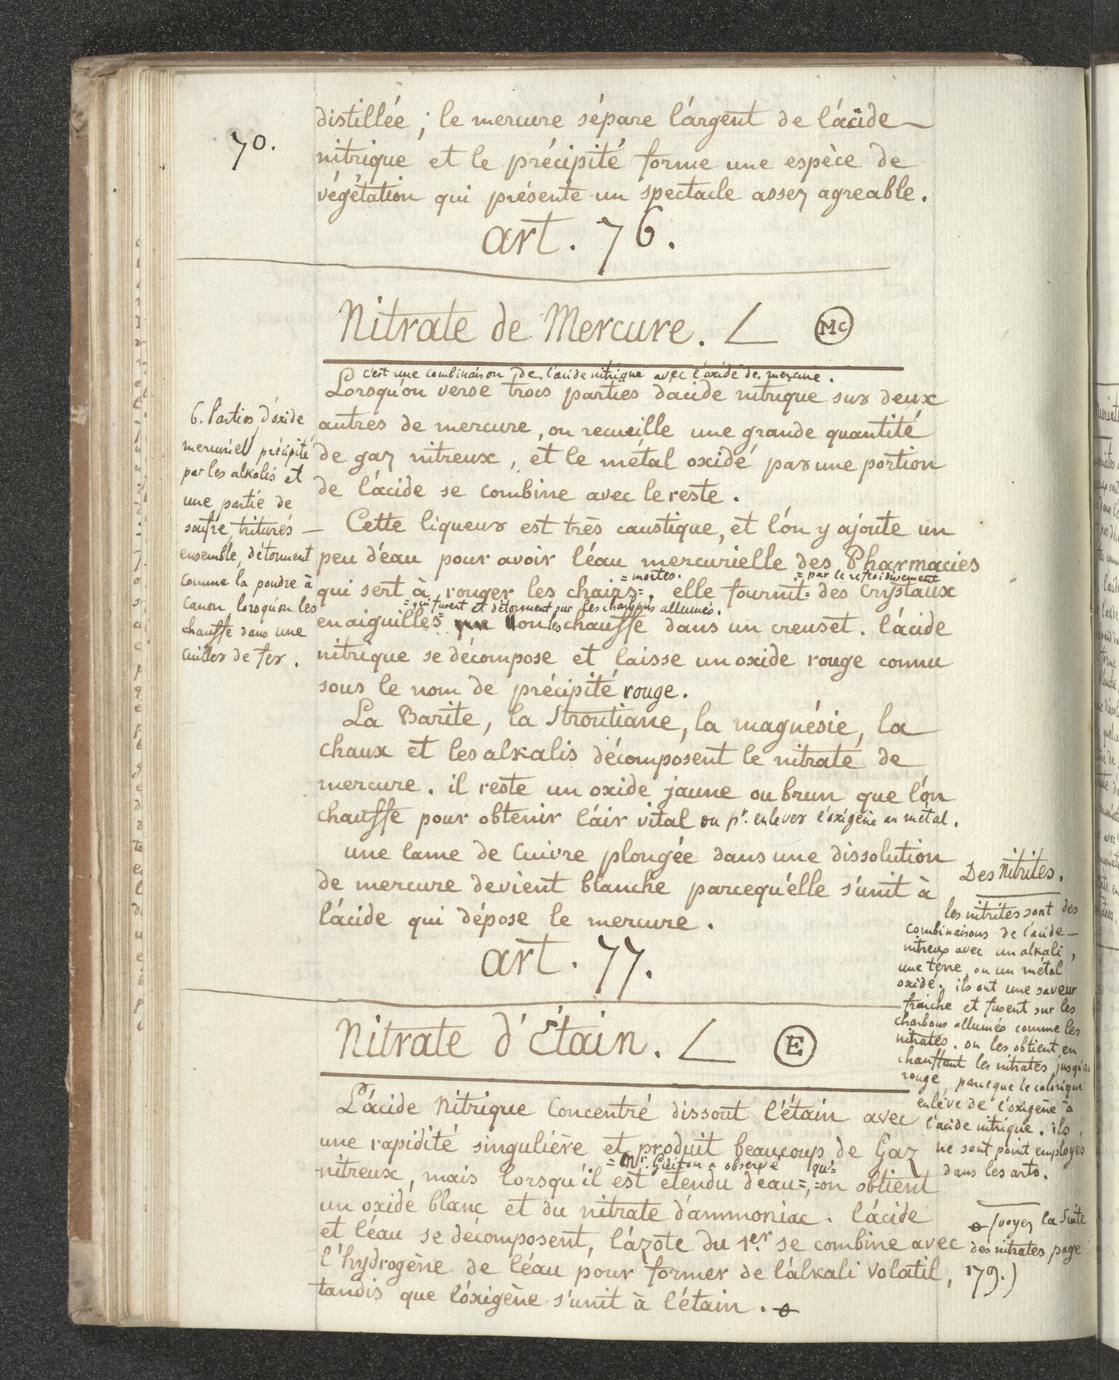 70.
distillée ; le mercure sépare l'argent de l'ácide
nitrique et le précipité forme une espèce de
végétation qui présente un spectacle assez agreable.
art. 76.
Nitrate de Mercure. L Mc
c'est une combinaison de l'acide nitrique avec l'oxide de mercure.
Lorsqu'on verse trois parties d'acide nitrique sur deux
autres de mercure, on recueille une grande quantité
de gaz nitreux, et le métal oxidé par une portion
de l'ácide se combine avec le reste.
Cette liqueur est très caustique, et l'on y ajoute un
peu d'eau pour avoir l'éau mercurielle des Pharmacies
= mortes. = par le refroidissement
qui sert à rouger les chairs=, elle fournit= des Crystaux
=qui fusent et détonnent sur les charbons allumés.
en aiguilles= l'on les chauffe dans un creuset. l'ácide
nitrique se décompose et laisse un oxide rouge connu
sous le nom de précipité rouge.
La Barite, la Strontiane, la magnésie, la
chaux et les alkalis décomposent le nitrate de
mercure. il reste un oxide jaune ou brun que l'on
chauffe pour obtenir l'áir vital ou pr. enlever l'oxigène au métal.
une lame de Cuivre plongée dans une dissolution
de mercure devient blanche parcequ'elle s'unit à
l'ácide qui dépose le mercure.
6. Parties d'oxide
mercuriel précipité
par les alkalis et
une partie de
soufre, triturés
ensemble, détonnent
comme la poudre à
Canon, lorsqu'on les
chauffe dans une
Cuiller de fer.
art. 77.
Nitrate d'Étain. L E
L'ácide Nitrique Concentré dissout l'étain avec
une rapidité singulière et produit beaucoup de Gaz
= Mr. Guiton a observé qu'=
nitreux, mais lorsqu'il est étendu d'eau=, =on obtient
un oxide blanc et du nitrate d'ammoniac. l'ácide
et l'éau se décomposent, l'ázote du 1er. se combine avec
l'hydrogène de l'éau pour former de l'álkali volatil,
tandis que l'óxigène s'unit à l'étain.
Des Nitrites.
les nitrites sont des
combinaisons de l'acide
nitreux avec un alkali,
une terre, ou un métal
oxidé. ils ont une saveur
fraiche et fusent sur les
charbons allumés comme les
nitrates. on les obtient en
chauffant les nitrates jusqu'au
rouge parceque le calorique
enlève de l'oxigène à
l'acide nitrique. ils
ne sont point employés
dans les arts.
(voyez la Suite
des nitrates page
179.)